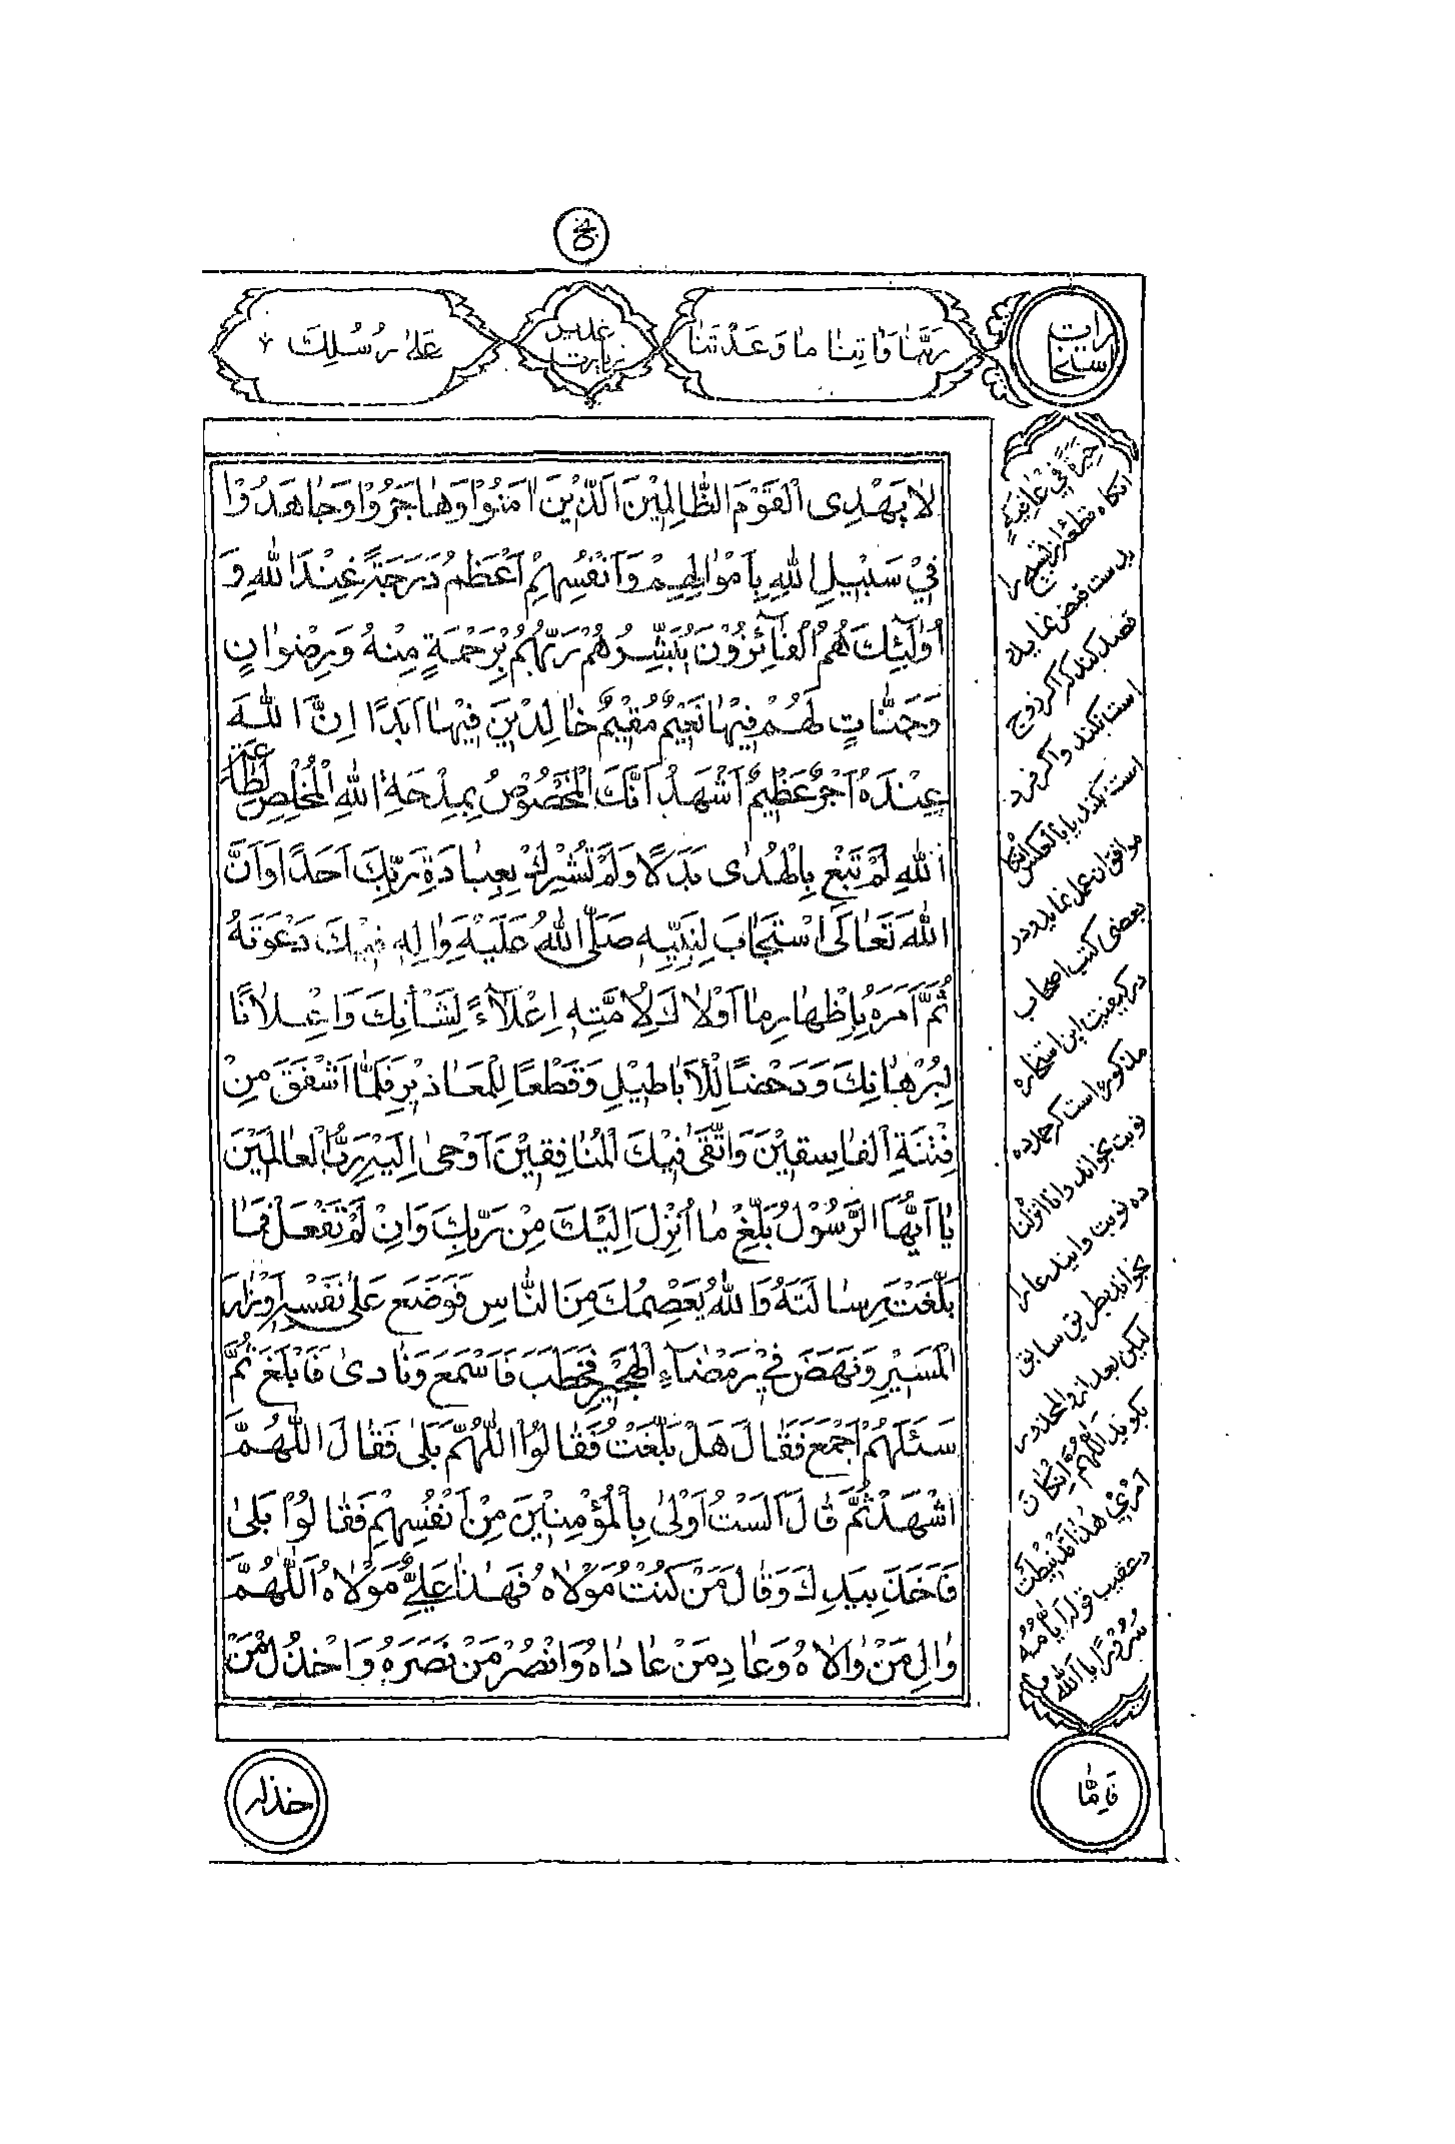 استخارات
رَبَّنَا وَاٰتِنَا مَا وَعَدْتَنَا
زيارت غدير
عَلىٰ رُسُلِكَ
لَا يَهْدِى الْقَوْمَ الظَّالِمِيْنَ اَلَّذِيْنَ اٰمَنُوْا وَهَاجَرُوْا وَجَاهَدُوْا
فِيْ سَبِيْلِ اللهِ بِاَمْوَالِهِمْ وَاَنْفُسِهِمْ اَعْظَمُ دَرَجَةً عِنْدَ اللهِ وَ
اُولٰٓئِكَ هُمُ الْفَآئِزُوْنَ يُبَشِّرُهُمْ رَبُّهُمْ بِرَحْمَةٍ مِنْهُ وَرِضْوَانٍ
وَجَنَّاتٍ لَهُمْ فِيْهَا نَعِيْمٌ مُقِيْمٌ خَالِدِيْنَ فِيْهَا اَبَدًا اِنَّ اللهَ
عِنْدَهُ اَجْرٌ عَظِيْمٌ اَشْهَدُ اَنَّكَ الْمَخْصُوْصُ بِمِدْحَةِ اللهِ الْمُخْلِصُ لِطَاعَةِ
اللهِ لَمْ تَبْغِ بِالْهُدٰى بَدَلًا وَلَمْ تُشْرِكْ بِعِبَادَةِ رَبِّكَ اَحَدًا وَاَنَّ
اللهَ تَعَالَى اسْتَجَابَ لِنَبِيِّهِ صَلَّى اللهُ عَلَيْهِ وَاٰلِهِ فِيْكَ دَعْوَتَهُ
ثُمَّ اَمَرَهُ بِاِظْهَارِ مَا اَوْلَاكَ لِاُمَّتِهِ اِعْلَآءً لِشَاْنِكَ وَاِعْلَانًا
لِبُرْهَانِكَ وَدَحْضًا لِلْاَبَاطِيْلِ وَقَطْعًا لِلْمَعَاذِيْرِ فَلَمَّا اَشْفَقَ مِنْ
فِتْنَةِ الْفَاسِقِيْنَ وَاتَّقٰى فِيْكَ الْمُنَافِقِيْنَ اَوْحٰى اِلَيْهِ رَبُّ الْعَالَمِيْنَ
يَا اَيُّهَا الرَّسُوْلُ بَلِّغْ مَا اُنْزِلَ اِلَيْكَ مِنْ رَبِّكَ وَاِنْ لَمْ تَفْعَلْ فَمَا
بَلَّغْتَ رِسَالَتَهُ وَاللهُ يَعْصِمُكَ مِنَ النَّاسِ فَوَضَعَ عَلٰى نَفْسِهِ اَوْزَارَ
الْمَسِيْرِ وَنَهَضَ فِيْ رَمْضَآءِ الْهَجِيْرِ فَخَطَبَ فَاَسْمَعَ وَنَادٰى فَاَبْلَغَ ثُمَّ
سَئَلَهُمْ اَجْمَعَ فَقَالَ هَلْ بَلَّغْتُ فَقَالُوْا اللّٰهُمَّ بَلٰى فَقَالَ اللّٰهُمَّ
اشْهَدْ ثُمَّ قَالَ اَلَسْتُ اَوْلٰى بِالْمُؤْمِنِيْنَ مِنْ اَنْفُسِهِمْ فَقَالُوْا بَلٰى
فَاَخَذَ بِيَدِكَ وَقَالَ مَنْ كُنْتُ مَوْلَاهُ فَهٰذَا عَلِيٌّ مَوْلَاهُ اَللّٰهُمَّ
وَالِ مَنْ وَالَاهُ وَعَادِ مَنْ عَادَاهُ وَانْصُرْ مَنْ نَصَرَهُ وَاخْذُلْ مَنْ
خذله
خِيَرَةً فِيْ عَافِيَةٍ
انكاه قطعۀ از تسبيح را
بدست قبض نمايد و
قصد كند كه اكر زوج
است بكند و اكر فرد
است نكند يا بالعكس انكاه
موافق ان عمل نمايد و در
بعضى كتب اصحاب
در كيفيت اين استخاره
مذكور است كه حمد را ده
نوبت بخواند و انا انزلنا
ده نوبت و اين دعا را
بخواند بطريق سابق
ليكن بعد از والمحذور
بكويد اَللّٰهُمَّ اِنْ كَانَ
اَمْرِيْ هٰذَا قَدْ نِيْطَتْ
و عقيب قوله اَيَّامُهُ
سُرُوْرًا يا اَللهُ
فَاِمَّا